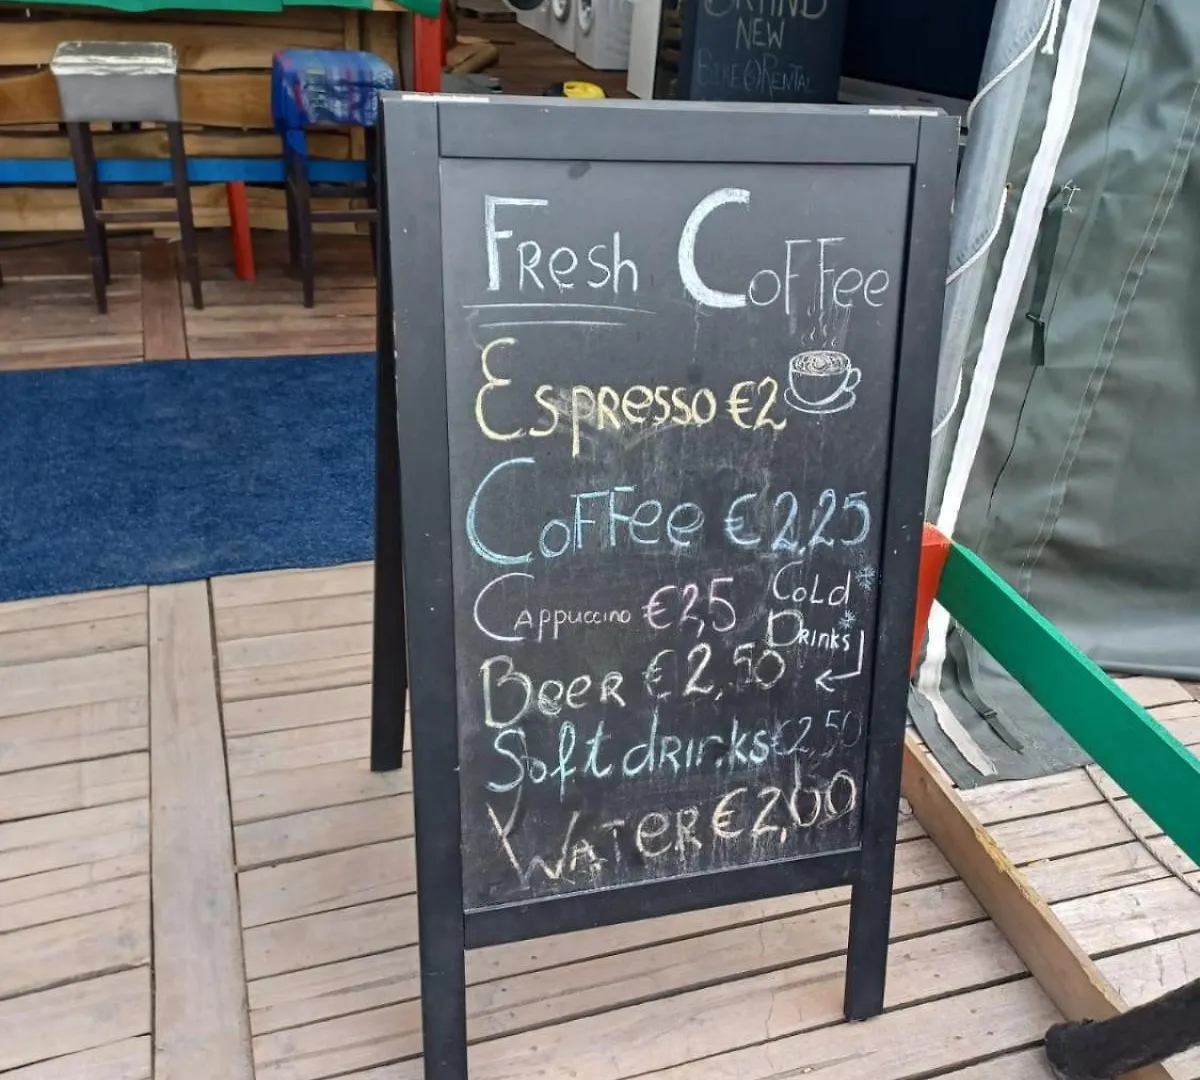 BRAND
NEW
BIKE(S) RENTAL
Fresh Coffee
Espresso €2
Coffee €2,25
Cappuccino €2,5
Cold
Drinks
Beer €2,50
Soft drinks €2,50
Water €2,00